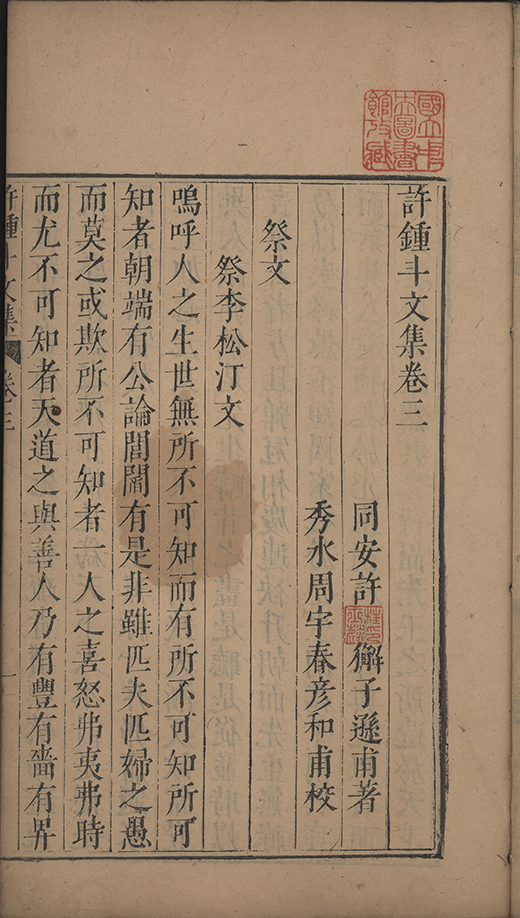 國立中
央圖書
館收藏
許鍾斗文集卷三
同安許獬子遜甫著
秀水周宇春彦和甫校
祭文
祭李松汀文
嗚呼人之生世無所不可知而有所不可知所可
知者朝端有公論閭閻有是非雖匹夫匹婦之愚
而莫之或欺所不可知者一人之喜怒弗夷弗時
而尤不可知者天道之與善人乃有豐有嗇有畀
許鍾斗文集
卷三
一